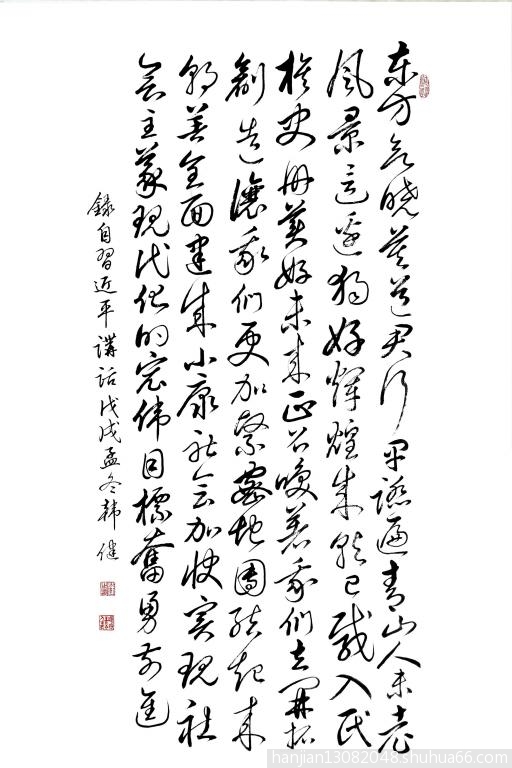 东方欲晓莫道君行早踏遍青山人未老
风景这边独好辉煌成就已载入民
族史册美好未来正召唤着我们去开拓
创造让我们更加紧密地团结起来
朝着全面建成小康社会加快实现社
会主义现代化的宏伟目标奋勇前进
錄自習近平講話戊戌孟冬韩健
hanjian13082048.shuhua66.com